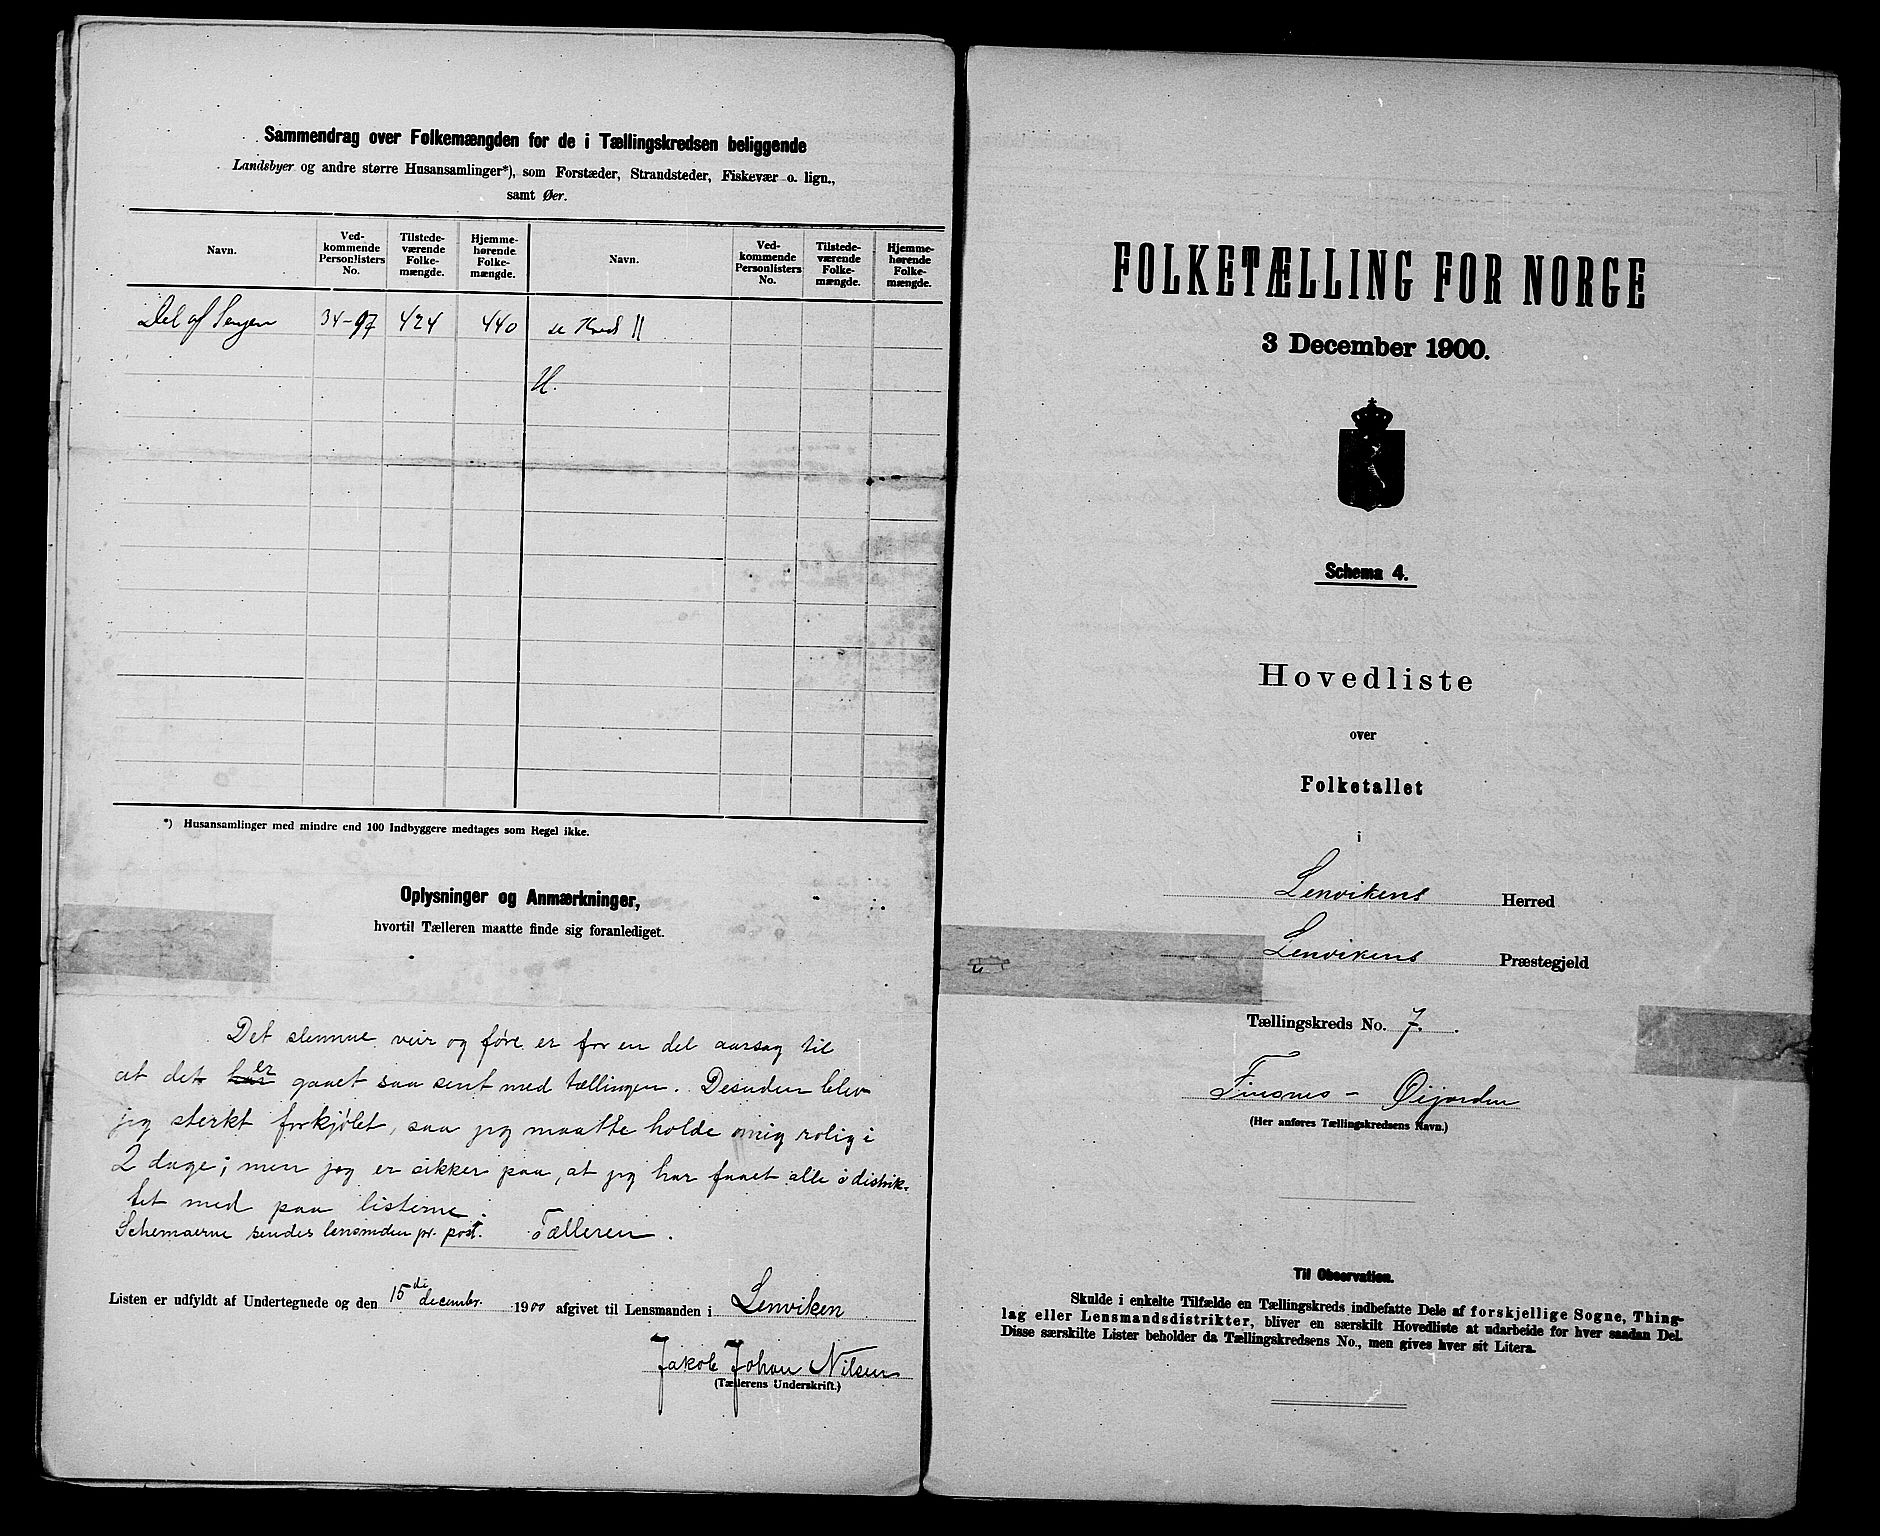 Sammendrag over Folkemængden for de i Tællingskredsen beliggende
Landsbyer og andre større Husansamlinger*), som Forstæder, Strandsteder, Fiskevær o. lign.,
samt Øer.
Navn.
Ved-
kommende
Personlisters
No.
Tilstede-
værende
Folke-
mængde.
Hjemme-
hørende
Folke-
mængde.
Navn.
Ved-
kommende
Personlisters
No.
Tilstede-
værende
Folke-
mængde.
Hjemme-
hørende
Folke-
mængde.
Del af Senjen 34-97 424 440 se Kreds 11
H.
*) Husansamlinger med mindre end 100 Indbyggere medtages som Regel ikke.
Oplysninger og Anmærkninger,
hvortil Tælleren maatte finde sig foranlediget.
Det slemme veir og føre er for en del aarsag til
at det har er gaaet saa sent med tællingen. Desuden blev
jeg sterkt forkjølet, saa jeg maatte holde mig rolig i
2 dage; men jeg er sikker paa, at jeg har faaet alle i distrik-
tet med paa listerne.
Schemaerne sendes lensmden pr. post. Tælleren.
Listen er udfyldt af Undertegnede og den 15de decembr. 1900 afgivet til Lensmanden i Lenviken
Jakob Johan Nilsen
(Tællerens Underskrift.)
FOLKETÆLLING FOR NORGE
3 December 1900.
Schema 4.
Hovedliste
over
Folketallet
i
Lenvikens Herred
Lenvikens Præstegjeld
Tællingskreds No. 7.
Finsnes - Øijorden
(Her anføres Tællingskredsens Navn.)
Til Observation.
Skulde i enkelte Tilfælde en Tællingskreds indbefatte Dele af forskjellige Sogne, Thing-
lag eller Lensmandsdistrikter, bliver en særskilt Hovedliste at udarbeide for hver saadan Del.
Disse særskilte Lister beholder da Tællingskredsens No., men gives hver sit Litera.